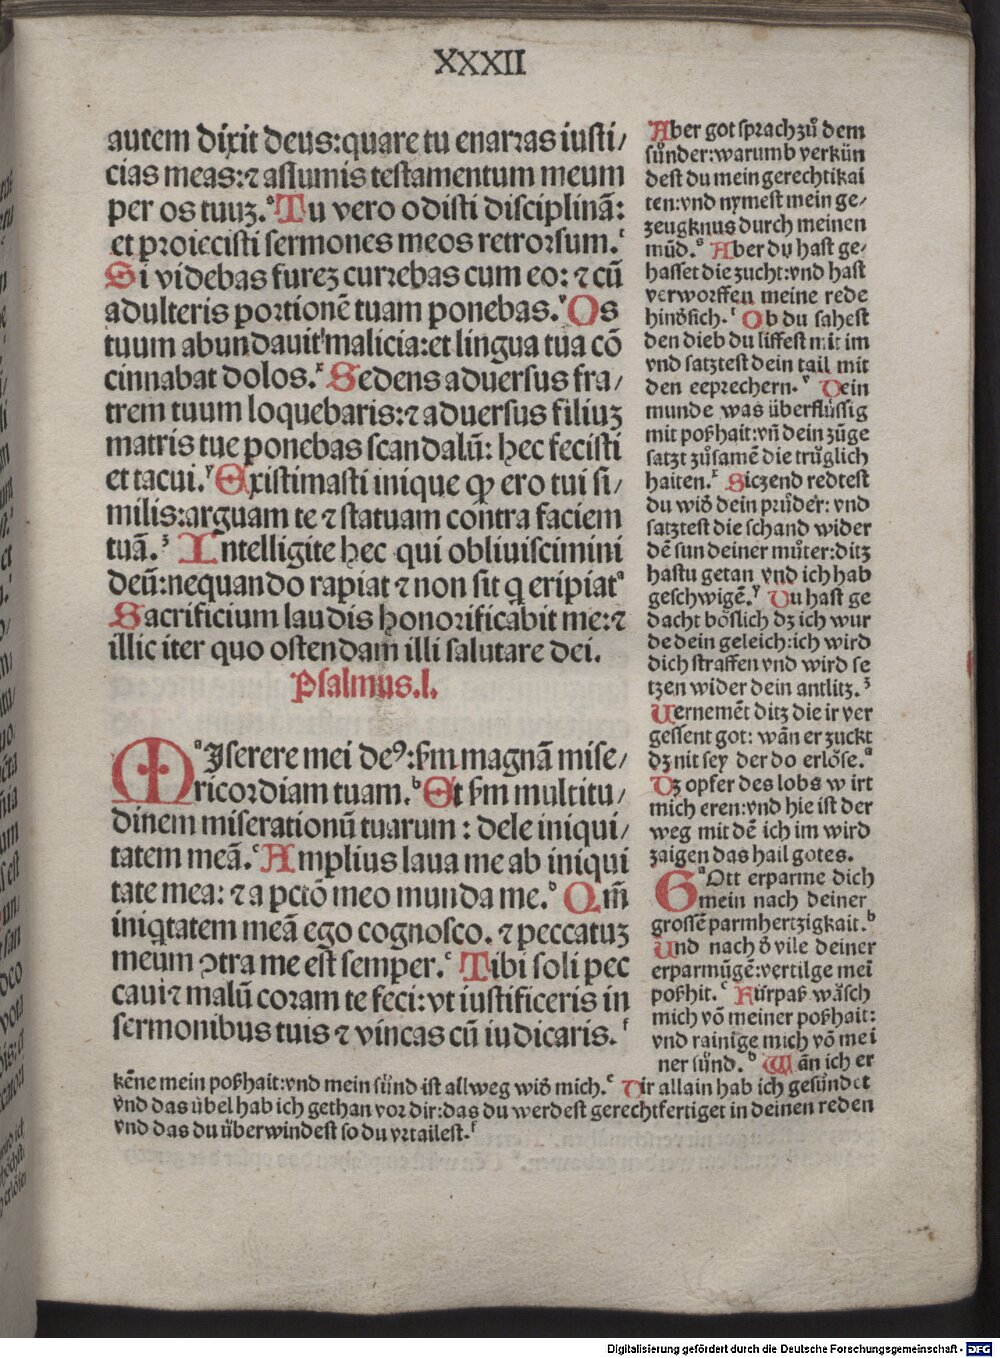 XXXII
autem dixit deus:quare tu enarras iusti/
cias meas:⁊ assumis testamentum meum
per os tuuꝫ.ˢ Tu vero odisti disciplinā:
et proiecisti sermones meos retrorsum.ᵗ
Si videbas fureꝫ currebas cum eo:⁊ cū
adulteris portionē tuam ponebas.ᵛ Os
tuum abundauit malicia:et lingua tua cō
cinnabat dolos.ˣ Sedens aduersus fra/
trem tuum loquebaris:⁊ aduersus filiuꝫ
matris tue ponebas scandalū: hec fecisti
et tacui.ʸ Existimasti inique ꝙ ero tui si/
milis:arguam te ⁊ statuam contra faciem
tuā.ᶻ Intelligite hec qui obliuiscimini
deū:nequando rapiat ⁊ non sit q̄ eripiatᵃ
Sacrificium laudis honorificabit me:⁊
illic iter quo ostendam illi salutare dei.
Psalmus.l.
MᵃIserere mei deꝰ:ẜm magnā mise/
ricordiam tuam.ᵇ Et ẜm multitu/
dinem miserationū tuarum : dele iniqui/
tatem meā.ᶜ Amplius laua me ab iniqui
tate mea: ⁊ a pctō meo munda me.ᵈ Qm̄
iniq̄tatem meā ego cognosco. ⁊ peccatuꝫ
meum ↄtra me est semper.ᵉ Tibi soli pec
caui⁊ malū coram te feci:vt iustificeris in
sermonibus tuis ⁊ vincas cū iudicaris.ᶠ
Aber got sprach zů dem
sünder:warumb verkün
dest du mein gerechtikai
ten:vnd nymest mein ge/
zeugknus durch meinen
mūd.ˢ Aber du hast ge/
hasset die zucht:vnd hast
verworffen meine rede
hindsich.ᵗ Ob du sahest
den dieb du liffest mit im
vnd satztest dein tail mit
den eeprechern.ᵛ Dein
munde was überflüssig
mit poßhait:vn̄ dein züge
satzt zůsamē die trüglich
haiten.ˣ Siczend redtest
du wid dein průder: vnd
satztest die schand wider
dē sun deiner můter:ditz
hastu getan vnd ich hab
geschwigē.ʸ Du hast ge
dacht böslich dz ich wur
de dein geleich:ich wird
dich straffen vnd wird se
tzen wider dein antlitz.ᶻ
Uernemēt ditz die ir ver
gessent got: wān er zuckt
dz nit sey der do erlöse.ᵃ
Dz opfer des lobs w irt
mich eren:vnd hie ist der
weg mit dē ich im wird
zaigen das hail gotes.
GᵃOtt erparme dich
mein nach deiner
grossē parmhertzigkait.ᵇ
Und nach d̓ vile deiner
erparmūgē:vertilge mei᷑
poßhit.ᶜ Fürpaß wäsch
mich vō meiner poßhait:
vnd rainige mich vō mei
ner sünd.ᵈ Wān ich er
kēne mein poßhait:vnd mein sünd ist allweg wid̓ mich.ᵉ Dir allain hab ich gesündet
vnd das übel hab ich gethan vor dir:das du werdest gerechtfertiget in deinen reden
vnd das du überwindest so du vrtailest.ᶠ
Digitalisierung gefördert durch die Deutsche Forschungsgemeinschaft - DFG